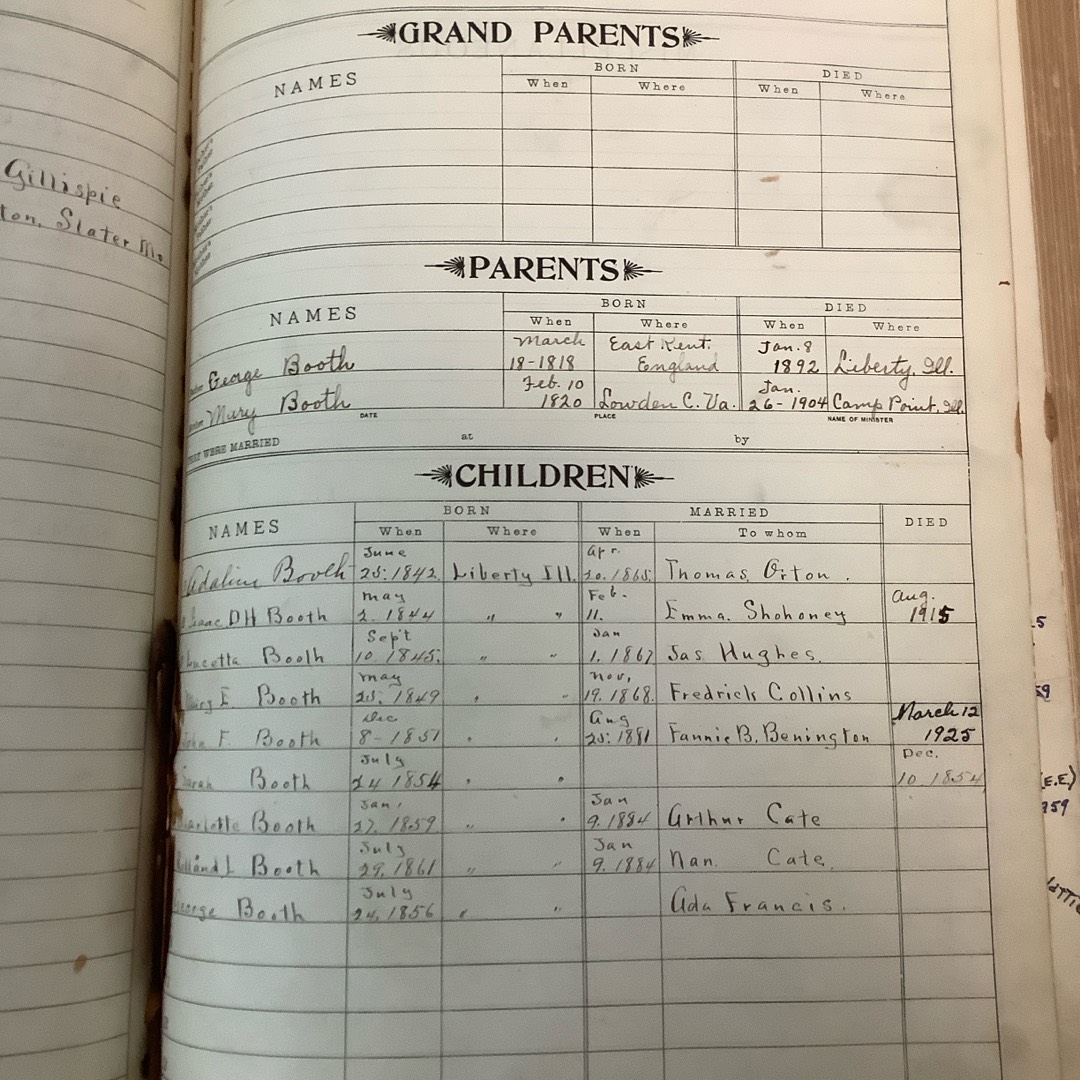 GRAND PARENTS
NAMES BORN DIED
When Where When Where
Gillispie
ton, Slater Mo.
PARENTS
NAMES BORN DIED
When Where When Where
March East Kent. Jan. 8
George Booth 18-1818 England 1892 Liberty, Ill.
Feb. 10 Jan.
Mary Booth 1820 Lowden C. Va. 26-1904 Camp Point, Ill.
DATE PLACE NAME OF MINISTER
WERE MARRIED at by
CHILDREN
NAMES BORN MARRIED DIED
When Where When To whom
June Apr.
Adaline Booth 25. 1842. Liberty Ill. 20. 1865. Thomas Orton.
May Feb. Aug.
Isaac DH Booth 2. 1844 " " 11. Emma. Shohoney 1915
Sept Jan
Lucetta Booth 10. 1845. " " 1. 1867 Jas Hughes.
May Nov,
Mary E. Booth 25. 1849 " " 19. 1868. Fredrick Collins
Dec Aug March 12
John F. Booth 8-1851 " " 25. 1881 Fannie B. Benington 1925
July Dec.
Sarah Booth 24 1854 " " 10. 1854
Jan. Jan
Charlotte Booth 27. 1859 " " 9. 1884 Arthur Cate
July Jan
Rolland L Booth 29. 1861 " " 9. 1884 Nan. Cate.
July
George Booth 24. 1856 " " Ada Francis.
5
59
(E.E.)
959